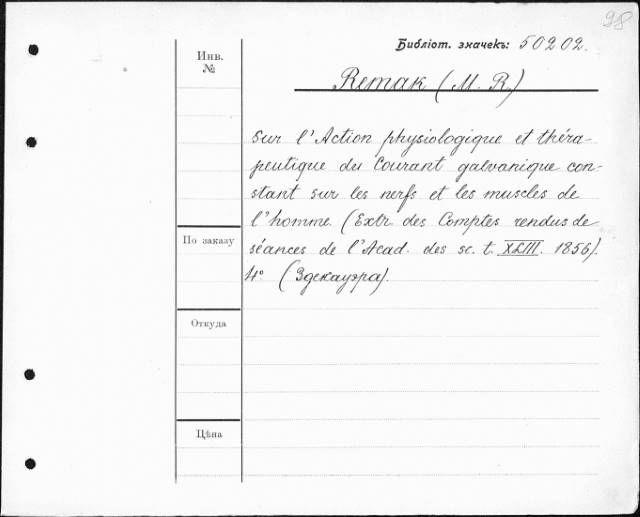 98
Библіот. значекъ: 50202.
Инв.
№
Remak (M. R.)
Sur l'Action physiologique et théra-
peutique du Courant galvanique con-
stant sur les nerfs et les muscles de
l'homme. (Extr. des Comptes rendus de
séances de l'Acad. des sc. t. XLIII. 1856).
4° (Здекауэра).
По заказу
Откуда
Цѣна